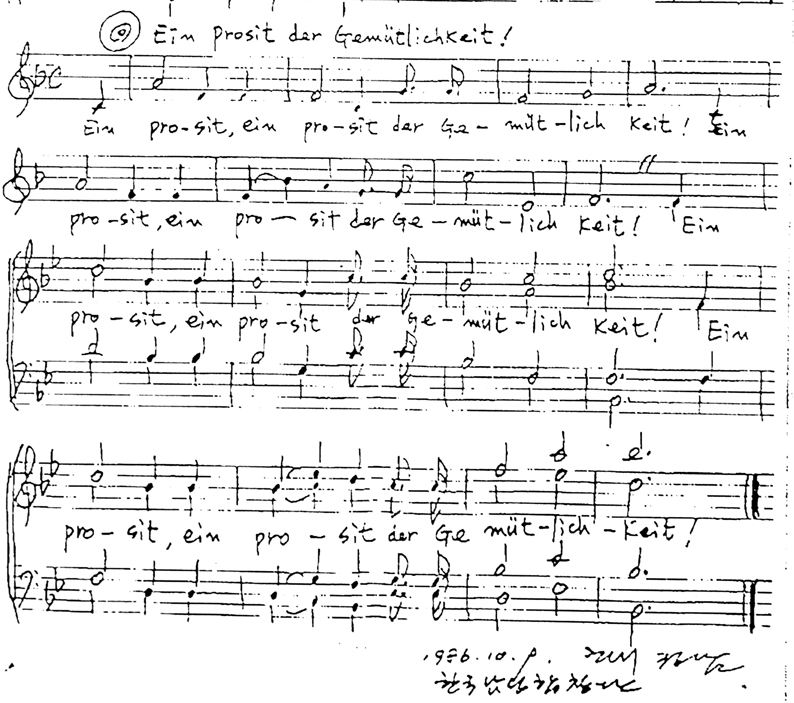 Ein Prosit der Gemütlichkeit!
Ein pro-sit, ein pro-sit der Ge-müt-lich Keit! Ein
pro-sit, ein pro-sit der Ge-müt-lich Keit! Ein
pro-sit, ein pro-sit der Ge-müt-lich Keit! Ein
pro-sit, ein pro-sit der Ge müt-lich-Keit!